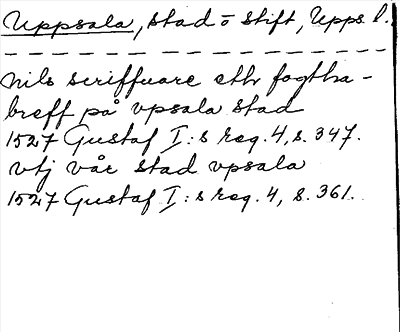 Uppsala, stad o stift, Upps l.
nils scriffuare eth fogtha-
breff på vpsala stad
1527 Gustaf I:s reg. 4, s. 347.
vtj vår stad vpsala
1527 Gustaf I:s reg. 4, s. 361.